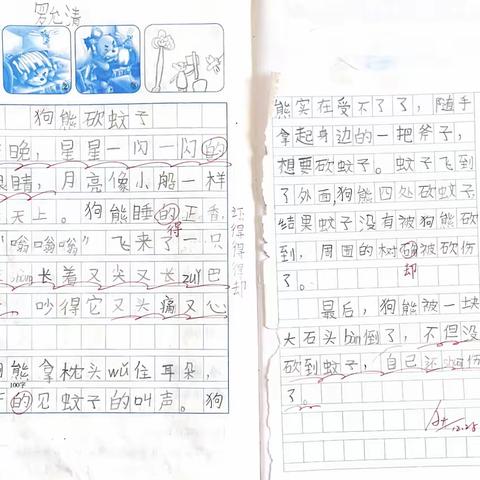 罗允清
②
狗熊砍蚊子
晚，星星一闪一闪的
眼睛，月亮像小船一样
天上。狗熊睡的正香，
得
“嗡嗡嗡”飞来了一只
长着又尖又长zuǐ巴
吵得它又头痛又心
熊拿枕头wǔ住耳朵，
100字
的见蚊子的叫声。狗
得得得
却
熊实在受不了了，随手
拿起身边的一把斧子，
想要砍蚊子。蚊子飞到
了外面，狗熊四处砍蚊子，
结果蚊子没有被狗熊砍
到，周围的树被砍伤
却
了。
最后，狗熊被一块
大石头bàn倒了，不但没
砍到蚊子，自己还伤
了。
12.25